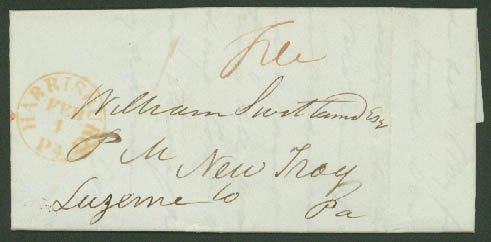 Free
HARRISB
FEB
1
Pa
William Swetland Esq
P M New Troy
Luzerne Co
Pa